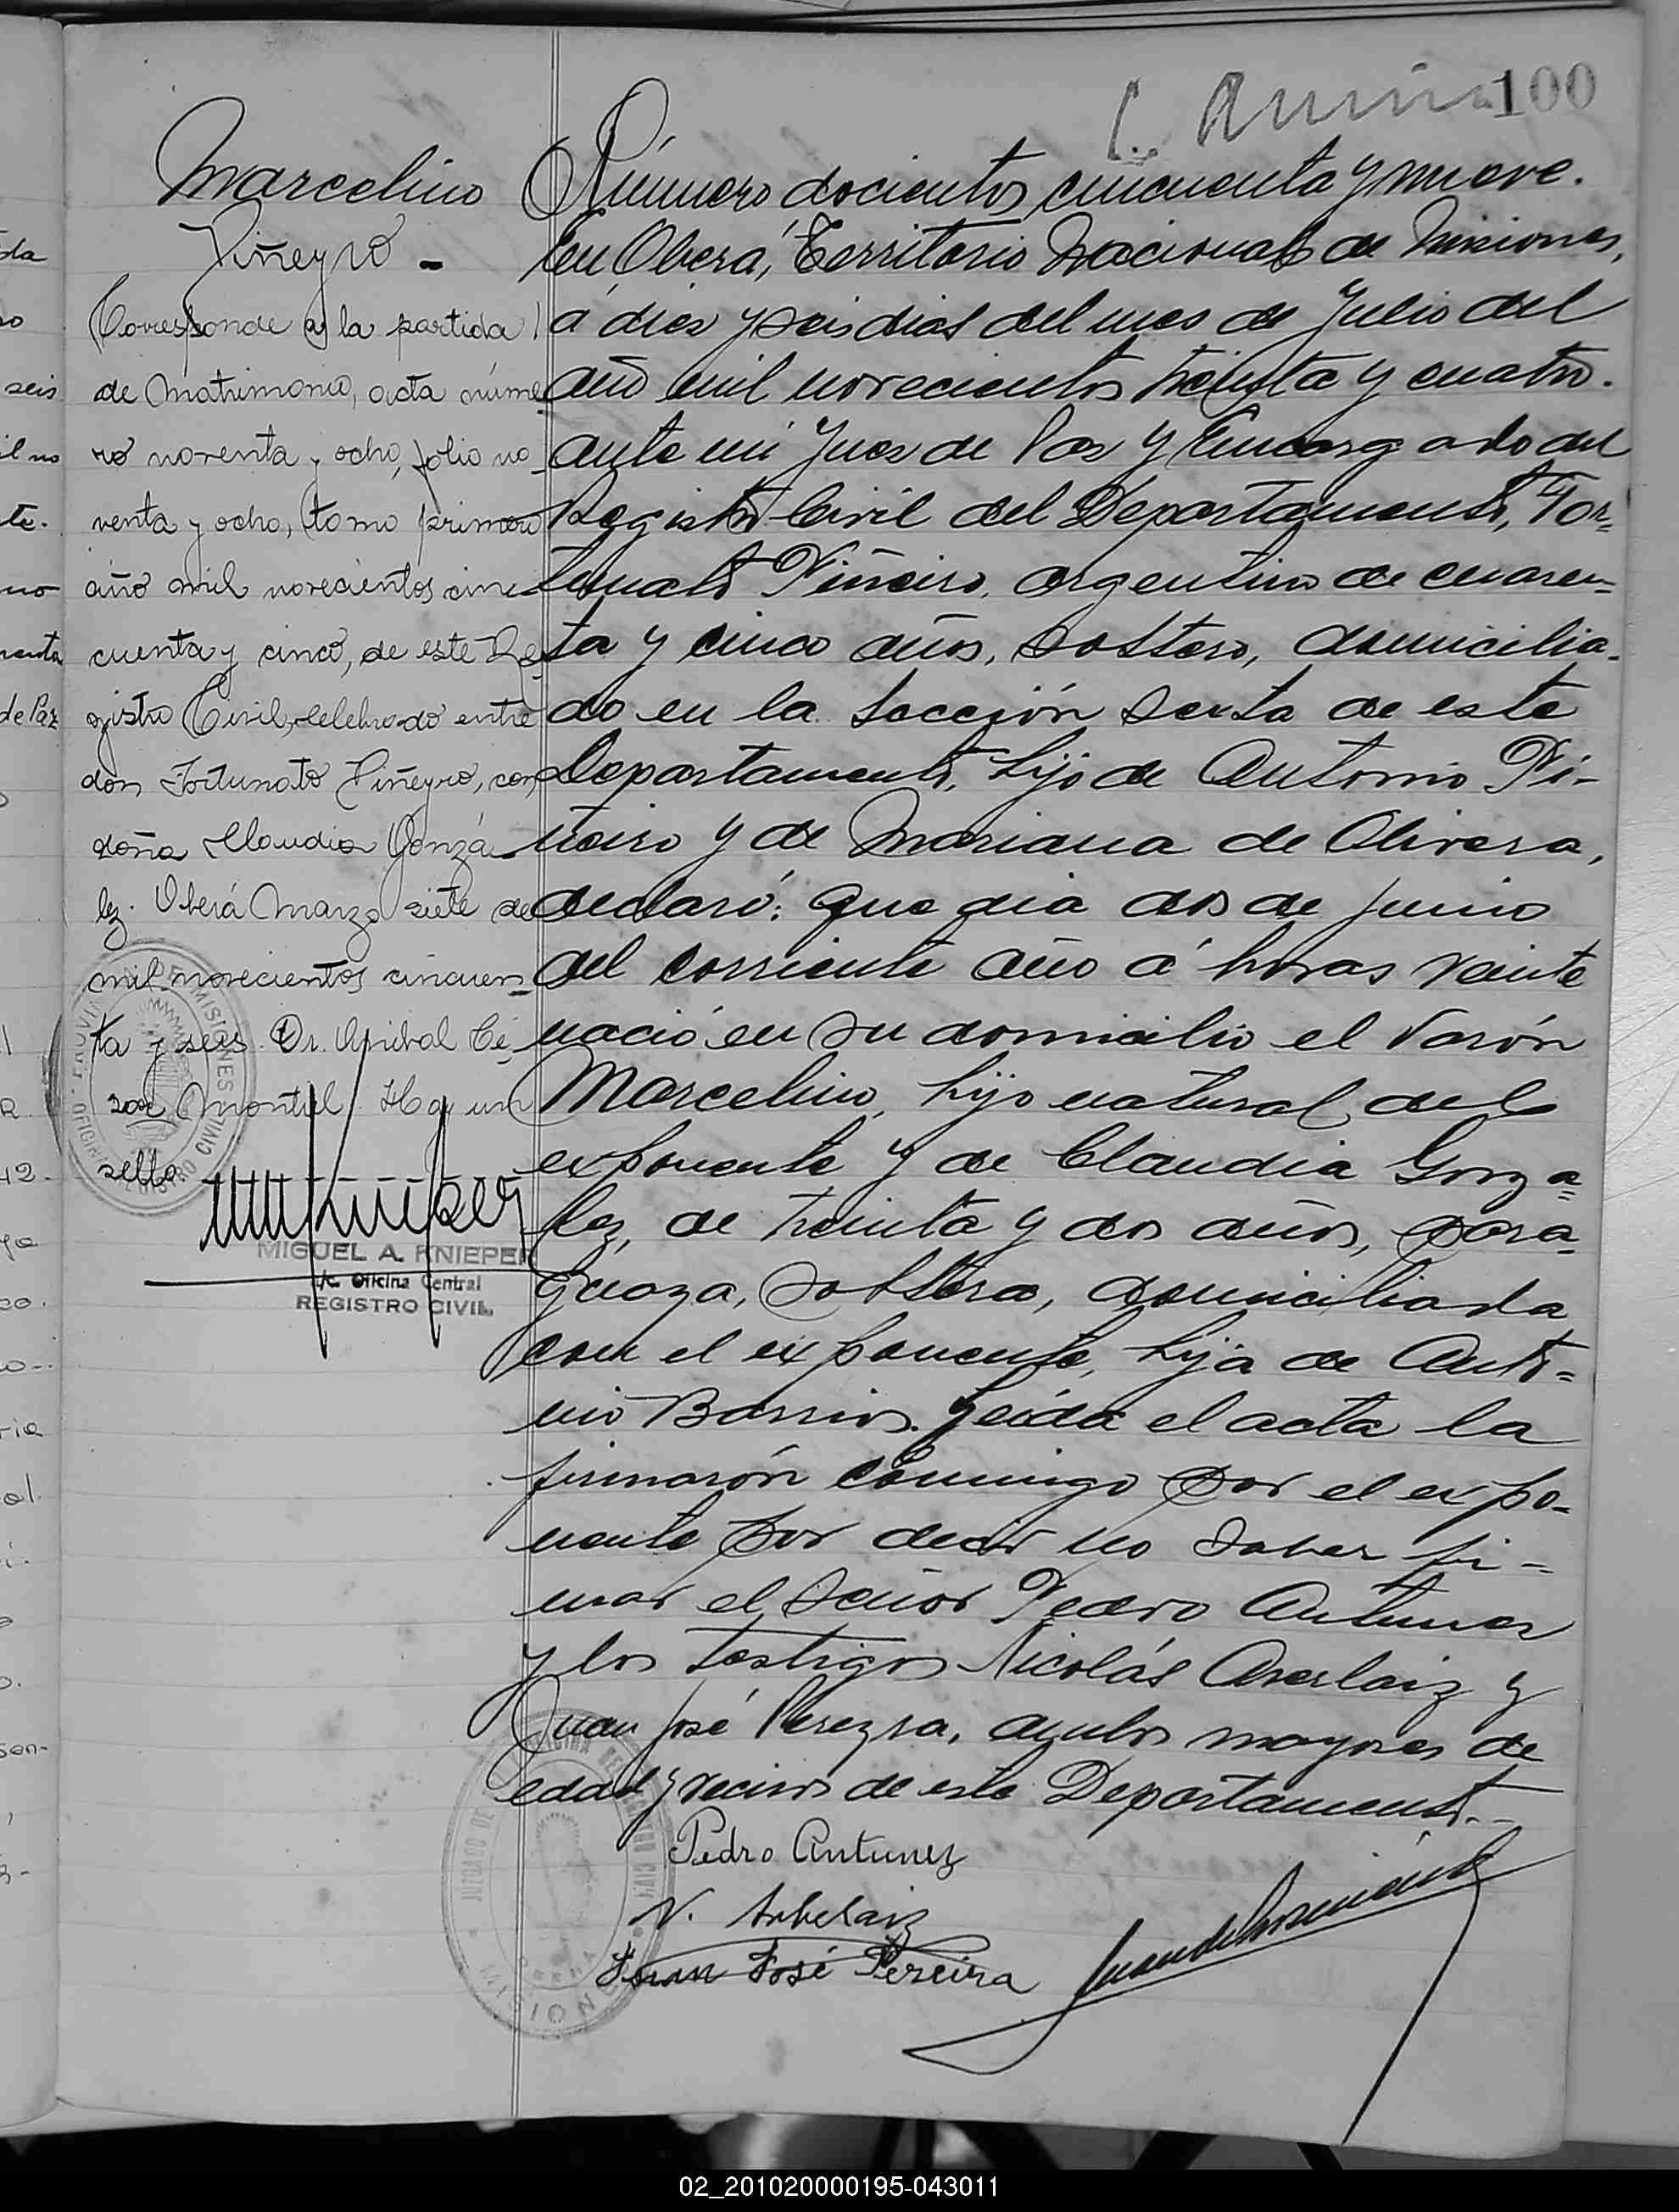 100
Marcelino
Piñeyro -
Corresponde a la partida
de Matrimonio, acta núme-
ro noventa y ocho, folio no-
venta y ocho, tomo primero
año mil novecientos cin-
cuenta y cinco, de este Re-
gistro Civil, celebrado entre
don Fortunato Piñeyro, con
doña Claudia Gonzá-
lez. Oberá Marzo siete de
mil novecientos cincuen-
ta y seis. Dr. Anibal Cé-
sar Montiel. Hay un
sello
MIGUEL A. KNIEPER
Oficina Central
REGISTRO CIVIL
Número docientos cincuenta y nueve.
En Oberá, Territorio Nacional de Misiones,
á diez y seis dias del mes de Julio del
año mil novecientos treinta y cuatro.
ante mi Juez de Paz y Encargado del
Registro Civil del Departamento, For=
tunato Piñeiro, argentino de cuaren=
ta y cinco años, soltero, domicilia-
do en la Sección Sexta de este
Departamento, hijo de Antonio Pi-
ñeiro y de Mariana de Olivera,
declaró: que dia dos de Junio
del corriente año á horas veinte
nació en su domicilio el varón
Marcelino, hijo natural del
exponente y de Claudia Gonza=
lez, de treinta y dos años, para=
guaya, soltera, domiciliada
con el exponente, hija de Anto=
nio Barrios. Leída el acta la
firmarón conmigo por el expo-
nente por decir no saber fir=
mar el señor Pedro Antunez
y los testigos Nicolás Averlaiz y
Juan José Pereyra, ambos mayores de
edad y vecinos de este Departamento.-
Pedro Antunez
N. Arbelaiz
Juan José Pereira
02_201020000195-043011